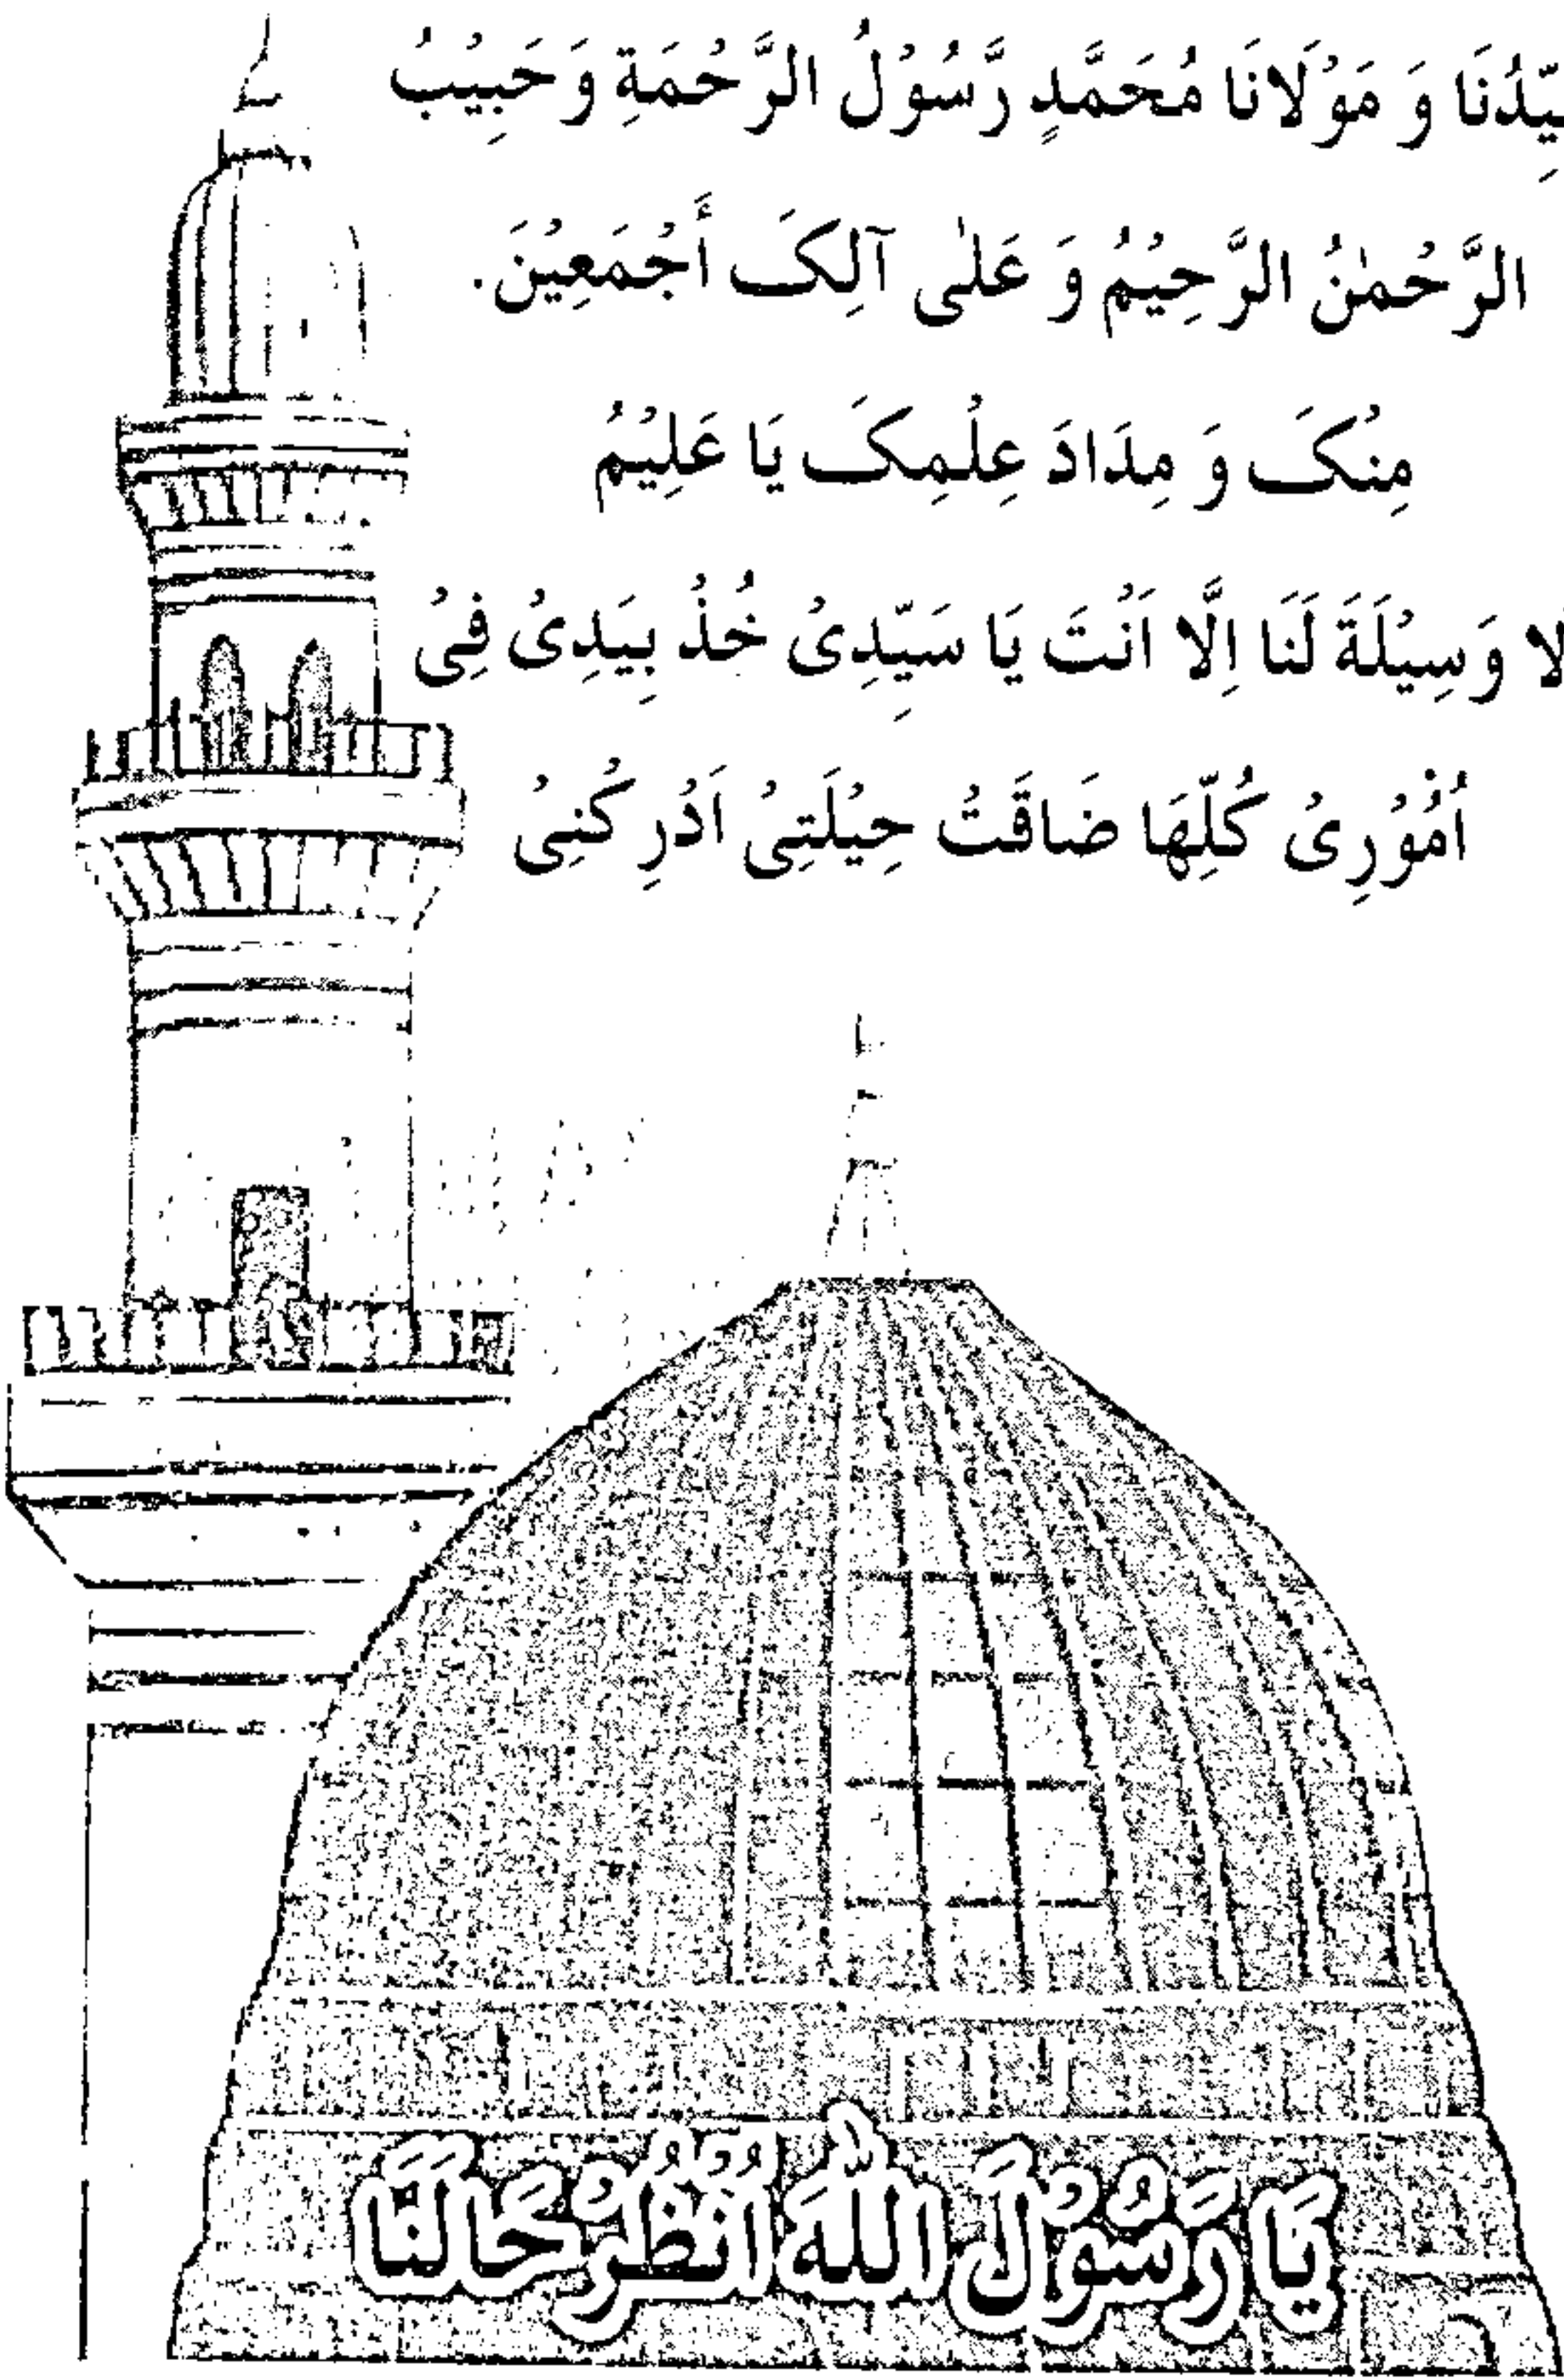 وَ مَوْلَانَا مُحَمَّدٍ رَّسُوْلُ الرَّحْمَةِ وَ حَبِيْبُ
الرَّحْمٰنُ الرَّحِيْمُ وَ عَلٰى آلِکَ أَجْمَعِيْنَ.
مِنْکَ وَ مِدَادَ عِلْمِکَ يَا عَلِيْمُ
لَا وَسِيْلَةَ لَنَا اِلَّا اَنْتَ يَا سَيِّدِىْ خُذْ بِيَدِىْ فِىْ
اُمُوْرِىْ كُلِّهَا ضَاقَتْ حِيْلَتِىْ اَدْرِكْنِىْ
يَا رَسُوْلَ اللّٰهَ انْظُرْ حَالَنَا